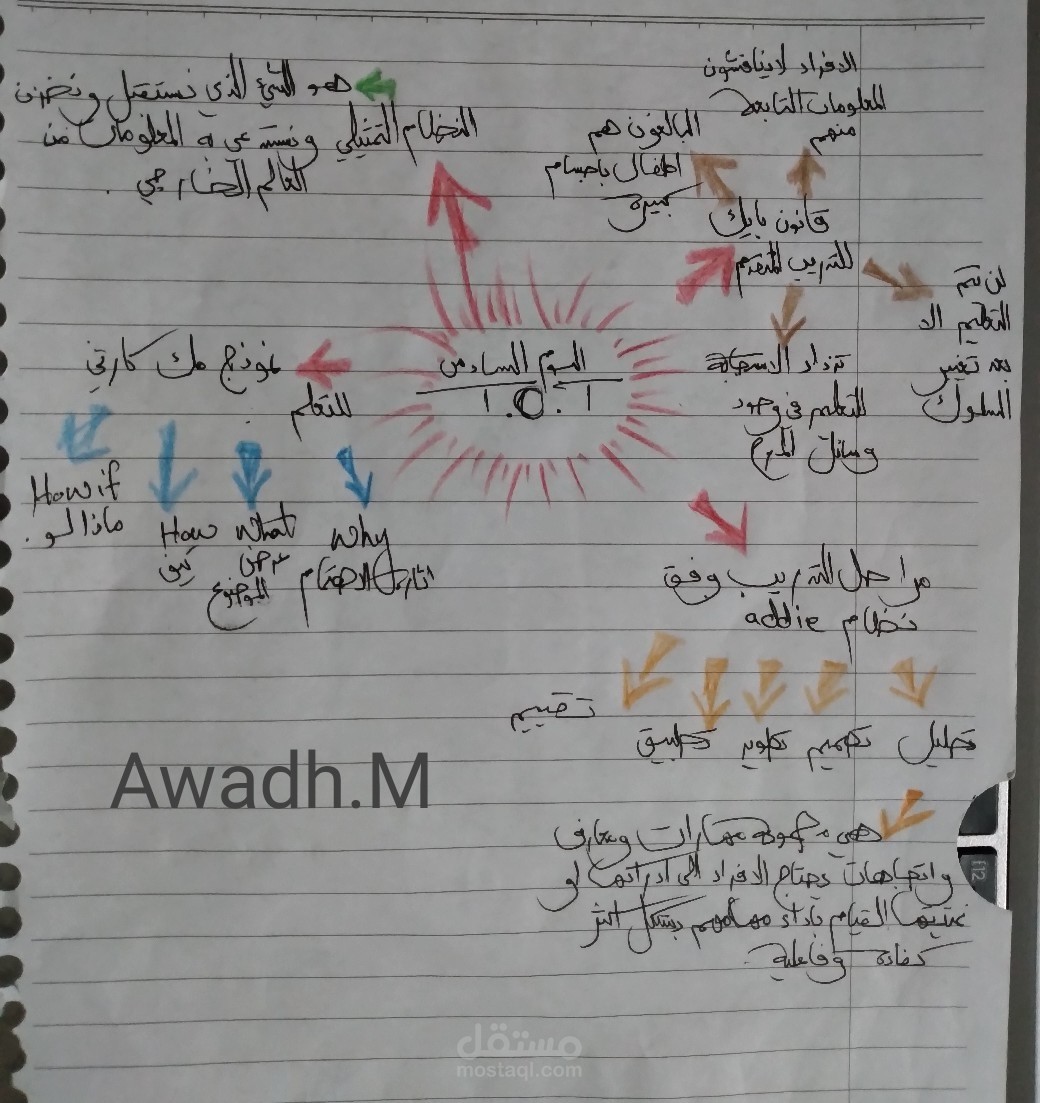 اليوم السادس
1.0.1
قانون بايك
للتدريب المتقدم
الافراد لا يناقشون
المعلومات التابعة
منهم
البالغون هم
اطفال باجسام
كبيرة
لن يتم
التعليم الا
بعد تغيير
السلوك
تزداد الاستجابة
للتعليم في وجود
وسائل المرح
النظام التمثيلي
هو الشيء الذي نستقبل ونخزن
ونستدعي به المعلومات من
العالم الخارجي .
نموذج مك كارثي
للتعلم
Why
اثارة الاهتمام
What
عرض
الموضوع
How
كيف
How if
ماذا لو .
مراحل التدريب وفق
نظام addie
تحليل
تصميم
تطوير
تطبيق
تقييم
هي مجموعه مهارات ومعارف
واتجاهات يحتاج الافراد الى
القيام بأداء مهامهم بشكل اكثر
كفاءة وفاعلية
Awadh.M
f12
مستقل
mostaql.com